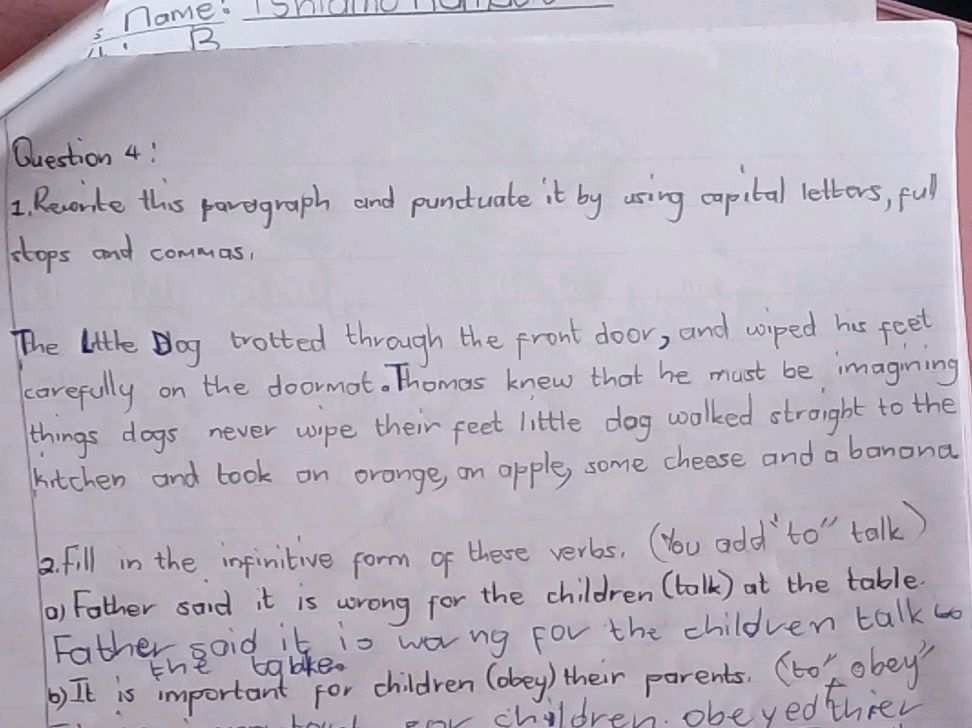 Name:
B
Question 4:
1. Rewrite this paragraph and punctuate it by using capital letters, full
stops and commas.
The Little Dog trotted through the front door, and wiped his feet
carefully on the doormat. Thomas knew that he must be imagining
things dogs never wipe their feet little dog walked straight to the
kitchen and took an orange, an apple, some cheese and a banana
2. Fill in the infinitive form of these verbs. (You add "to" talk)
a) Father said it is wrong for the children (talk) at the table.
Father said it is worng for the children talk to
the tabke.
b) It is important for children (obey) their parents. (to" obey"
for children. obeyed thier